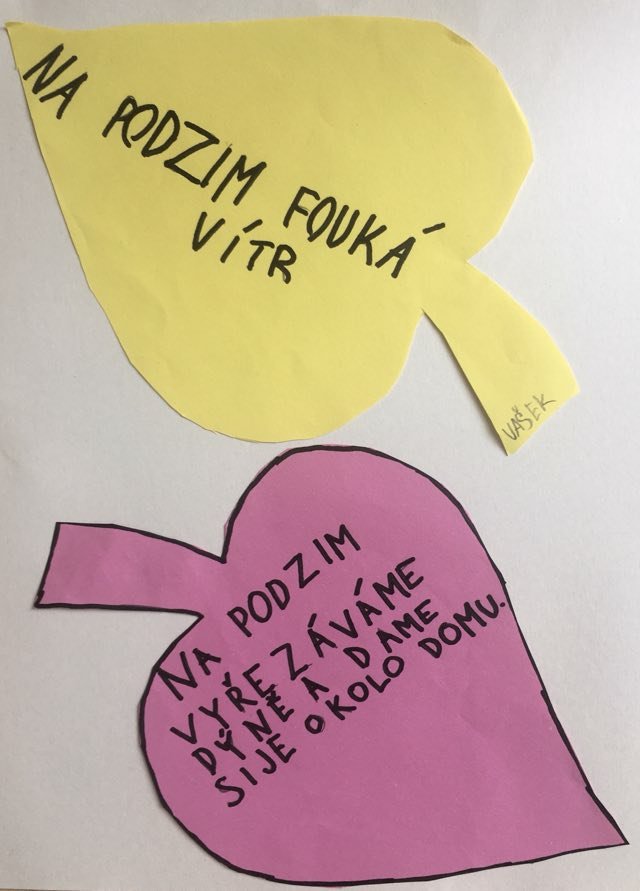 NA PODZIM FOUKÁ
VÍTR
VAŠEK
NA PODZIM
VYŘEZÁVÁME
DÝNĚ A DAME
SIJE OKOLO DOMU.